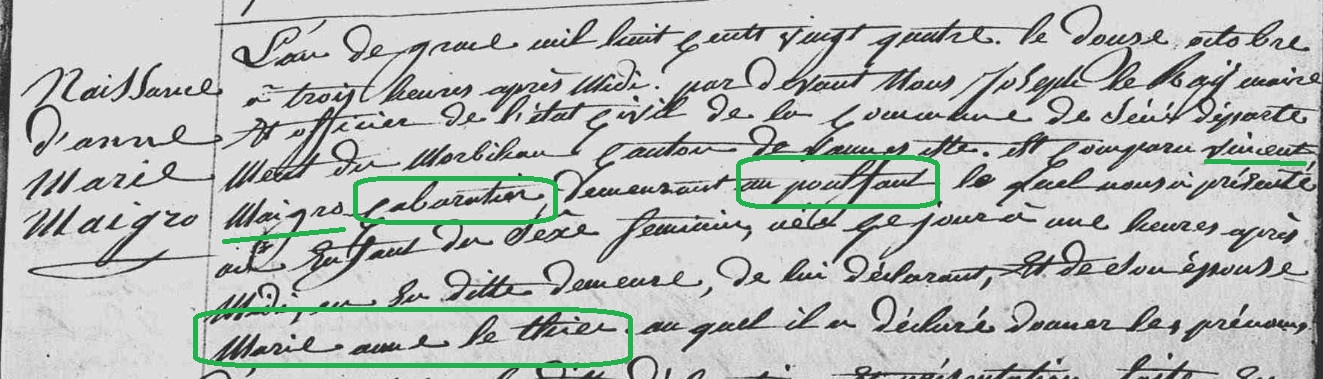 Naissance
d'anne
Marie
Maigro
L'an de grace mil huit cents vingt quatre. le douse octobre
à trois heures après Midi. par devant Nous Joseph le Ray maire
et officier de l'état Civil de la Commune de Séné départe
Ment du Morbihan Canton de Vannes est. est Comparu vincent
Maigro Cabaratier, demeurant au poulfant le quel nous a présenté
un Enfant du Séxe feminin, née Ce jour à une heures après
Midi, en Sa ditte demeure, de lui déclarant, Et de son épouse
Marie anne le thiec. au quel il a déclaré donner les prénoms
présentation faite